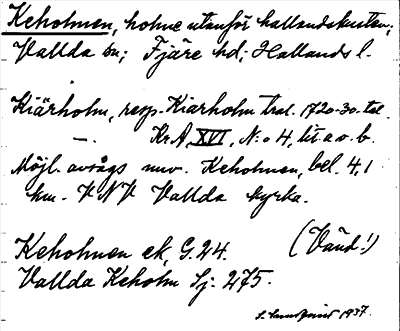 Keholmen, holme utanför hallandskusten;
Vallda sn; Fjäre hd; Hallands l.
Kiärholm, resp. Kiarholm tral. 1720-30-tal
—. Kr.A, XVI, N:o 4, lit a o. b.
Möjl. avsågs nuv. Keholmen, bel. 4,1
km. VNV Vallda kyrka.
Keholmen ek, G. 24. (Vänd!)
Vallda Keholm Sj: 275.
1937.